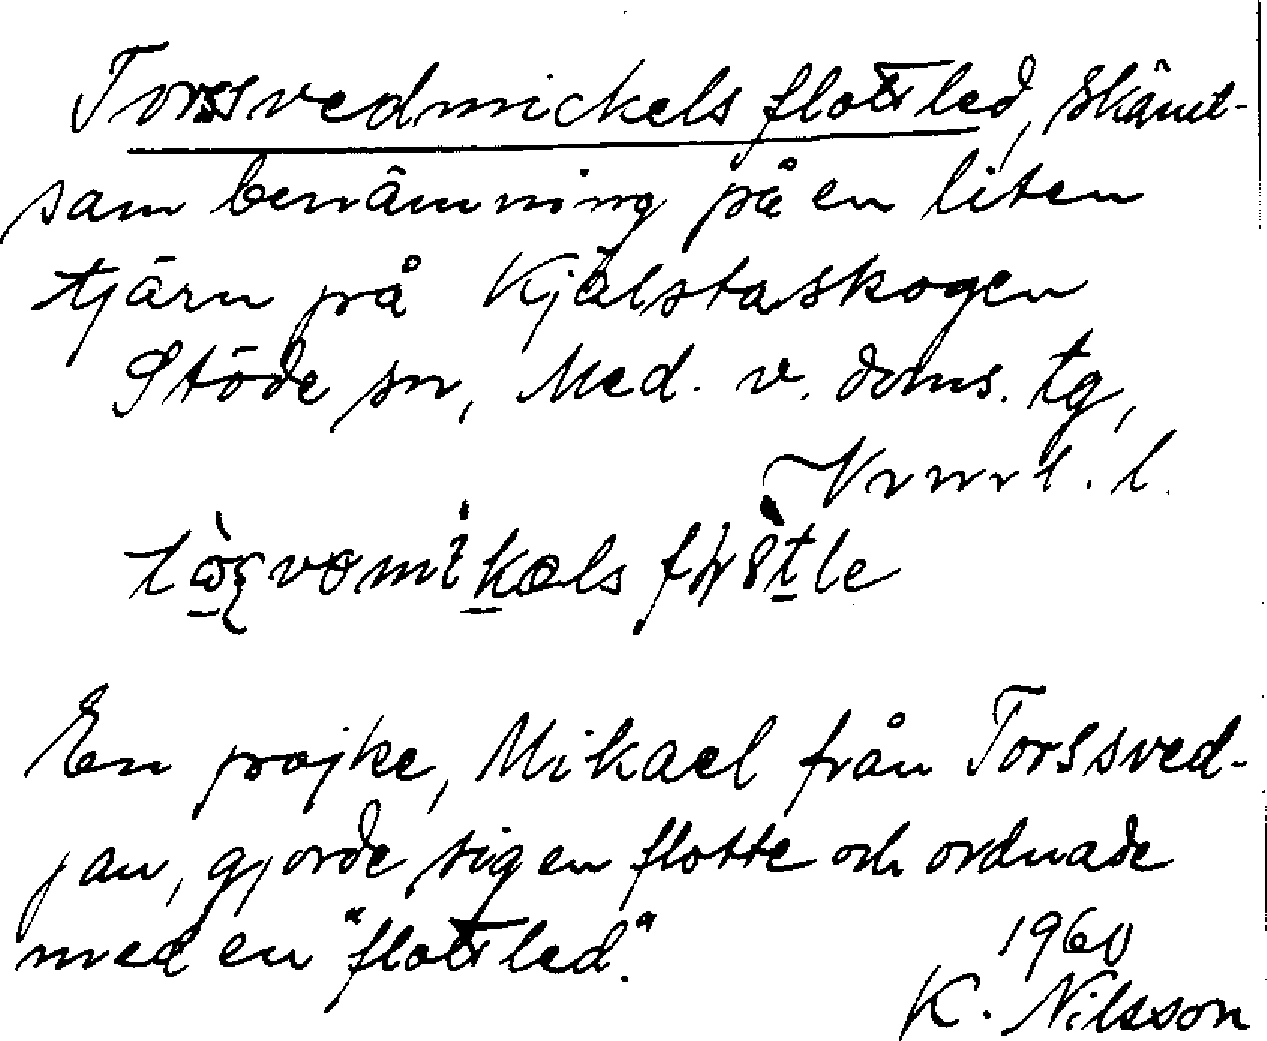 Torssvedmickels flottled, skämt-
sam benämning på en liten
tjärn på Kjälstaskogen
Stöde sn, Med. v. doms. tg,
l.
En pojke, Mikael från Torssved-
jan, gjorde sig en flotte och ordnade
med en "flottled."
1960
K. Nilsson